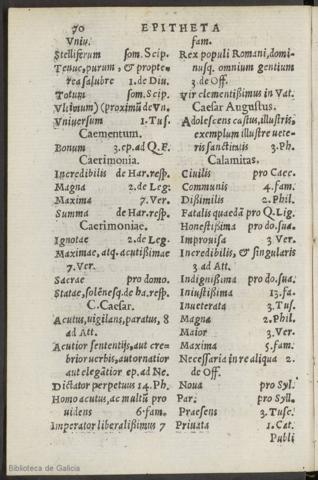 70 EPITHETA
Vniu.
Stelliferum som. Scip.
Tenue, purum, & propte-
rea salubre 1. de Diu.
Totum som. Scip.
Vltimum) (proximũ de Vn.
Vniuersum 1. Tus.
Caementum.
Bonum 3. ep. ad Q. F.
Caerimonia.
Incredibilis de Har. resp.
Magna 2. de Leg.
Maxima 7. Ver.
Summa de Har. resp.
Caerimoniae.
Ignotae 2. de Leg.
Maximae, atq. acutißimae
7. Ver.
Sacrae pro domo.
Statae, solẽnesq. de ha. resp.
C. Caesar.
Acutus, vigilans, paratus, 8
ad Att.
Acutior sententijs, aut cre-
brior verbis, aut ornatior
aut elegãtior ep. ad Ne.
Dictator perpetuus 14. Ph.
Homo acutus, ac multũ pro
uidens 6. fam.
Imperator liberalißimus 7
fam.
Rex populi Romani, domi-
nusq. omnium gentium
3. de Off.
Vir clementißimus in Vat.
Caesar Augustus.
Adolescens castus, illustris,
exemplum illustre uete-
ris sanctitatis 3. Ph.
Calamitas.
Ciuilis pro Caec.
Communis 4. fam.
Dißimilis 2. Phil.
Fatalis quaedã pro Q. Lig.
Honestißima pro do. sua.
Improuisa 3. Ver.
Incredibilis, & singularis
3 ad Att.
Indignißima pro do. sua.
Iniustißima 13. fa.
Inueterata 3. Tus.
Magna 2. Phil.
Maior 3. Ver.
Maxima 5. fam.
Necessaria in re aliqua 2.
de Off.
Noua pro Syl.
Par. pro Syll.
Praesens 3. Tusc.
Priuata 1. Cat.
Publi
Biblioteca de Galicia